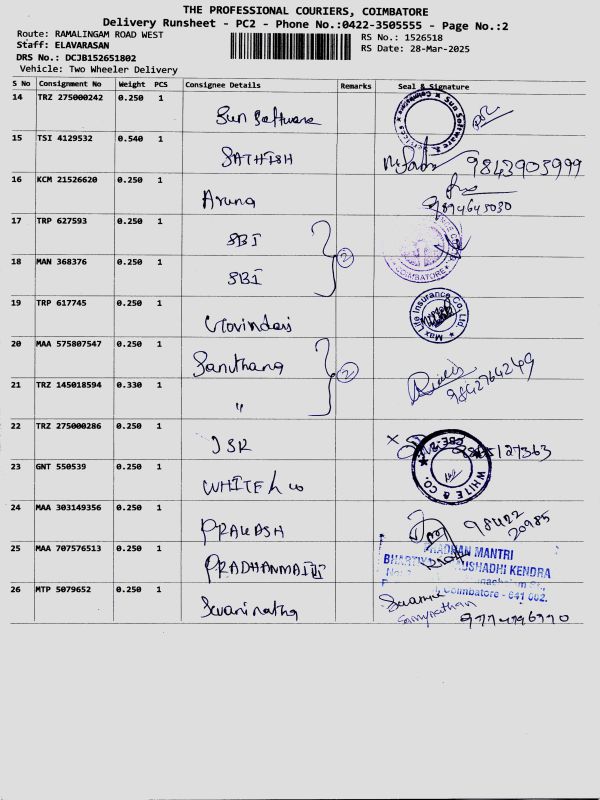 THE PROFESSIONAL COURIERS, COIMBATORE
Delivery Runsheet - PC2 - Phone No.:0422-3505555 - Page No.:2
Route: RAMALINGAM ROAD WEST
RS No.: 1526518
Staff: ELAVARASAN
RS Date: 28-Mar-2025
DRS No.: DCJB152651802
Vehicle: Two Wheeler Delivery
S No Consignment No Weight PCS Consignee Details Remarks Seal & Signature
14 TRZ 275000242 0.250 1 Sun Software
Sun Software
15 TSI 4129532 0.540 1 SATHISH 9843905999
16 KCM 21526620 0.250 1 Aruna 9894645030
17 TRP 627593 0.250 1 SBI
2
COIMBATORE
18 MAN 368376 0.250 1 SBI
19 TRP 617745 0.250 1 Max life Insurance Co. Ltd.
20 MAA 575807547 0.250 1
2
9842764249
21 TRZ 145018594 0.330 1 "
22 TRZ 275000286 0.250 1 JSR 127363
23 GNT 550539 0.250 1 WHITE & CO
CBE-2 WHITE & CO.
24 MAA 303149356 0.250 1 PRAKASH 98422 20985
25 MAA 707576513 0.250 1
MANTRI
KENDRA
Coimbatore - 641 002.
26 MTP 5079652 0.250 1